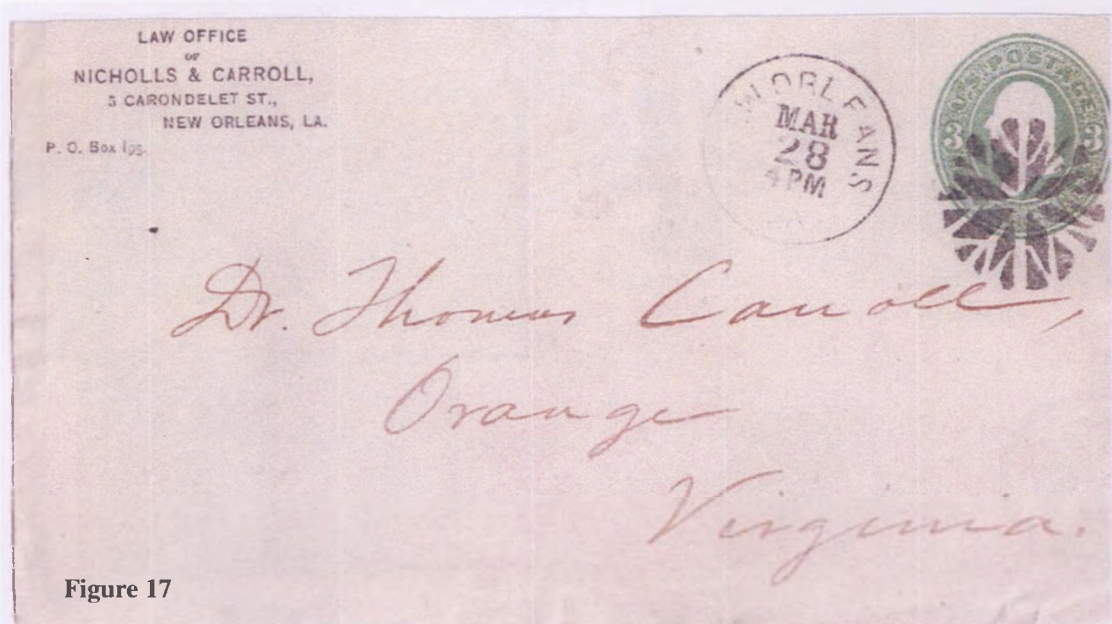 LAW OFFICE
OF
NICHOLLS & CARROLL,
5 CARONDELET ST.,
NEW ORLEANS, LA.
P. O. Box 195.
W ORLEANS
MAR
28
4 PM
U.S. POSTAGE
3 3
Dr. Thomas Carroll,
Orange
Virginia.
Figure 17